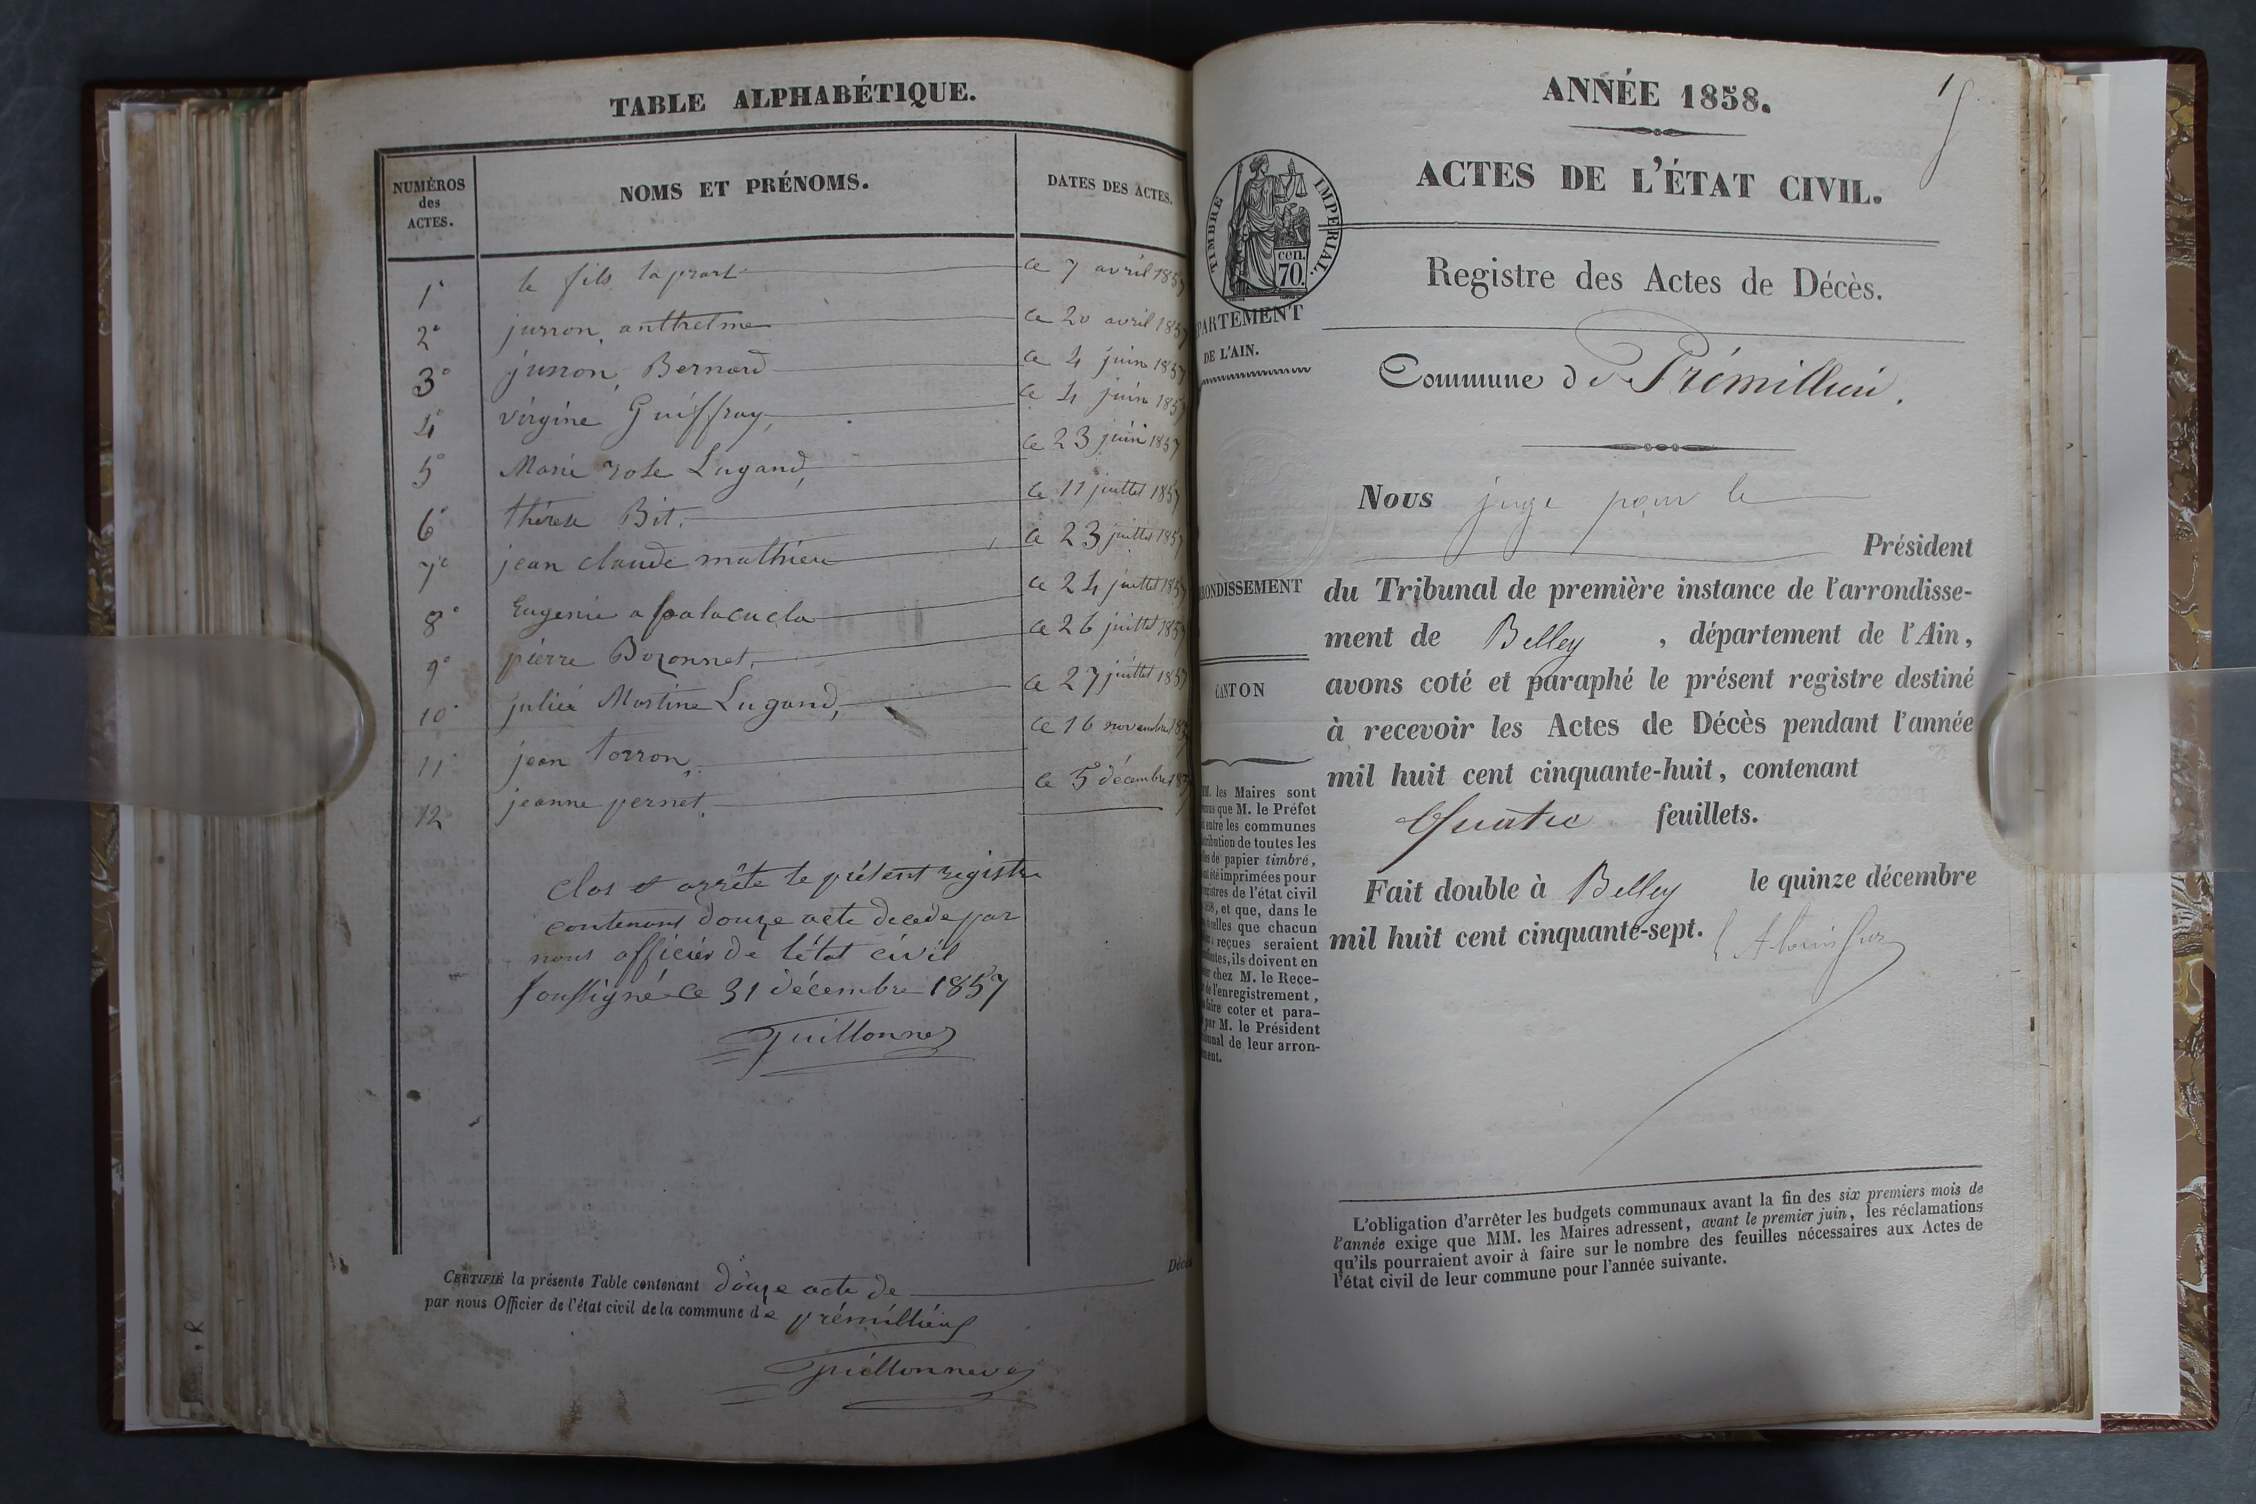 TABLE ALPHABÉTIQUE.
NUMÉROS des ACTES.
NOMS ET PRÉNOMS.
DATES DES ACTES.
1° le fils laprart ce 7 avril 1857
2° junon, anthelme ce 20 avril 1857
3° junon, Bernard ce 4 juin 1857
4° virgine Guiffray, ce 4 juin 1857
5° Marie rose Lugand, ce 23 juin 1857
6° thérese Bit. ce 11 juillet 1857
7° jean claude mathieu ce 23 juillet 1857
8° Eugenie ce 24 juillet 1857
9° pierre Bozonnet, ce 26 juillet 1857
10° julie Martine Lugand, ce 27 juillet 1857
11° jean torron, ce 16 novembre 1857
12 jeanne pernet, ce 5 décembre 1857
clos et arrête le présent registre
contenant douze acte decede par
nous officier de l'état civil
soussigné ce 31 décembre 1857
CERTIFIÉ la présente Table contenant douze acte de Décès
par nous Officier de l'état civil de la commune de prémillieu
ANNÉE 1858.
1
ACTES DE L'ÉTAT CIVIL.
TIMBRE IMPERIAL.
cen. 70.
Registre des Actes de Décès.
PARTEMENT
DE L'AIN.
Commune de Prémillieu.
Nous juge pour le
Président
du Tribunal de première instance de l'arrondisse-
ment de Belley, département de l'Ain,
avons coté et paraphé le présent registre destiné
à recevoir les Actes de Décès pendant l'année
mil huit cent cinquante-huit, contenant
Quatre feuillets.
Fait double à Belley le quinze décembre
mil huit cent cinquante-sept.
RONDISSEMENT
CANTON
MM. les Maires sont
que M. le Préfet
entre les communes
de toutes les
de papier timbré,
été imprimées pour
registres de l'état civil
et que, dans le
elles que chacun
reçues seraient
ils doivent en
chez M. le Rece-
de l'enregistrement,
faire coter et para-
par M. le Président
de leur arron-
L'obligation d'arrêter les budgets communaux avant la fin des six premiers mois de
l'année exige que MM. les Maires adressent, avant le premier juin, les réclamations
qu'ils pourraient avoir à faire sur le nombre des feuilles nécessaires aux Actes de
l'état civil de leur commune pour l'année suivante.